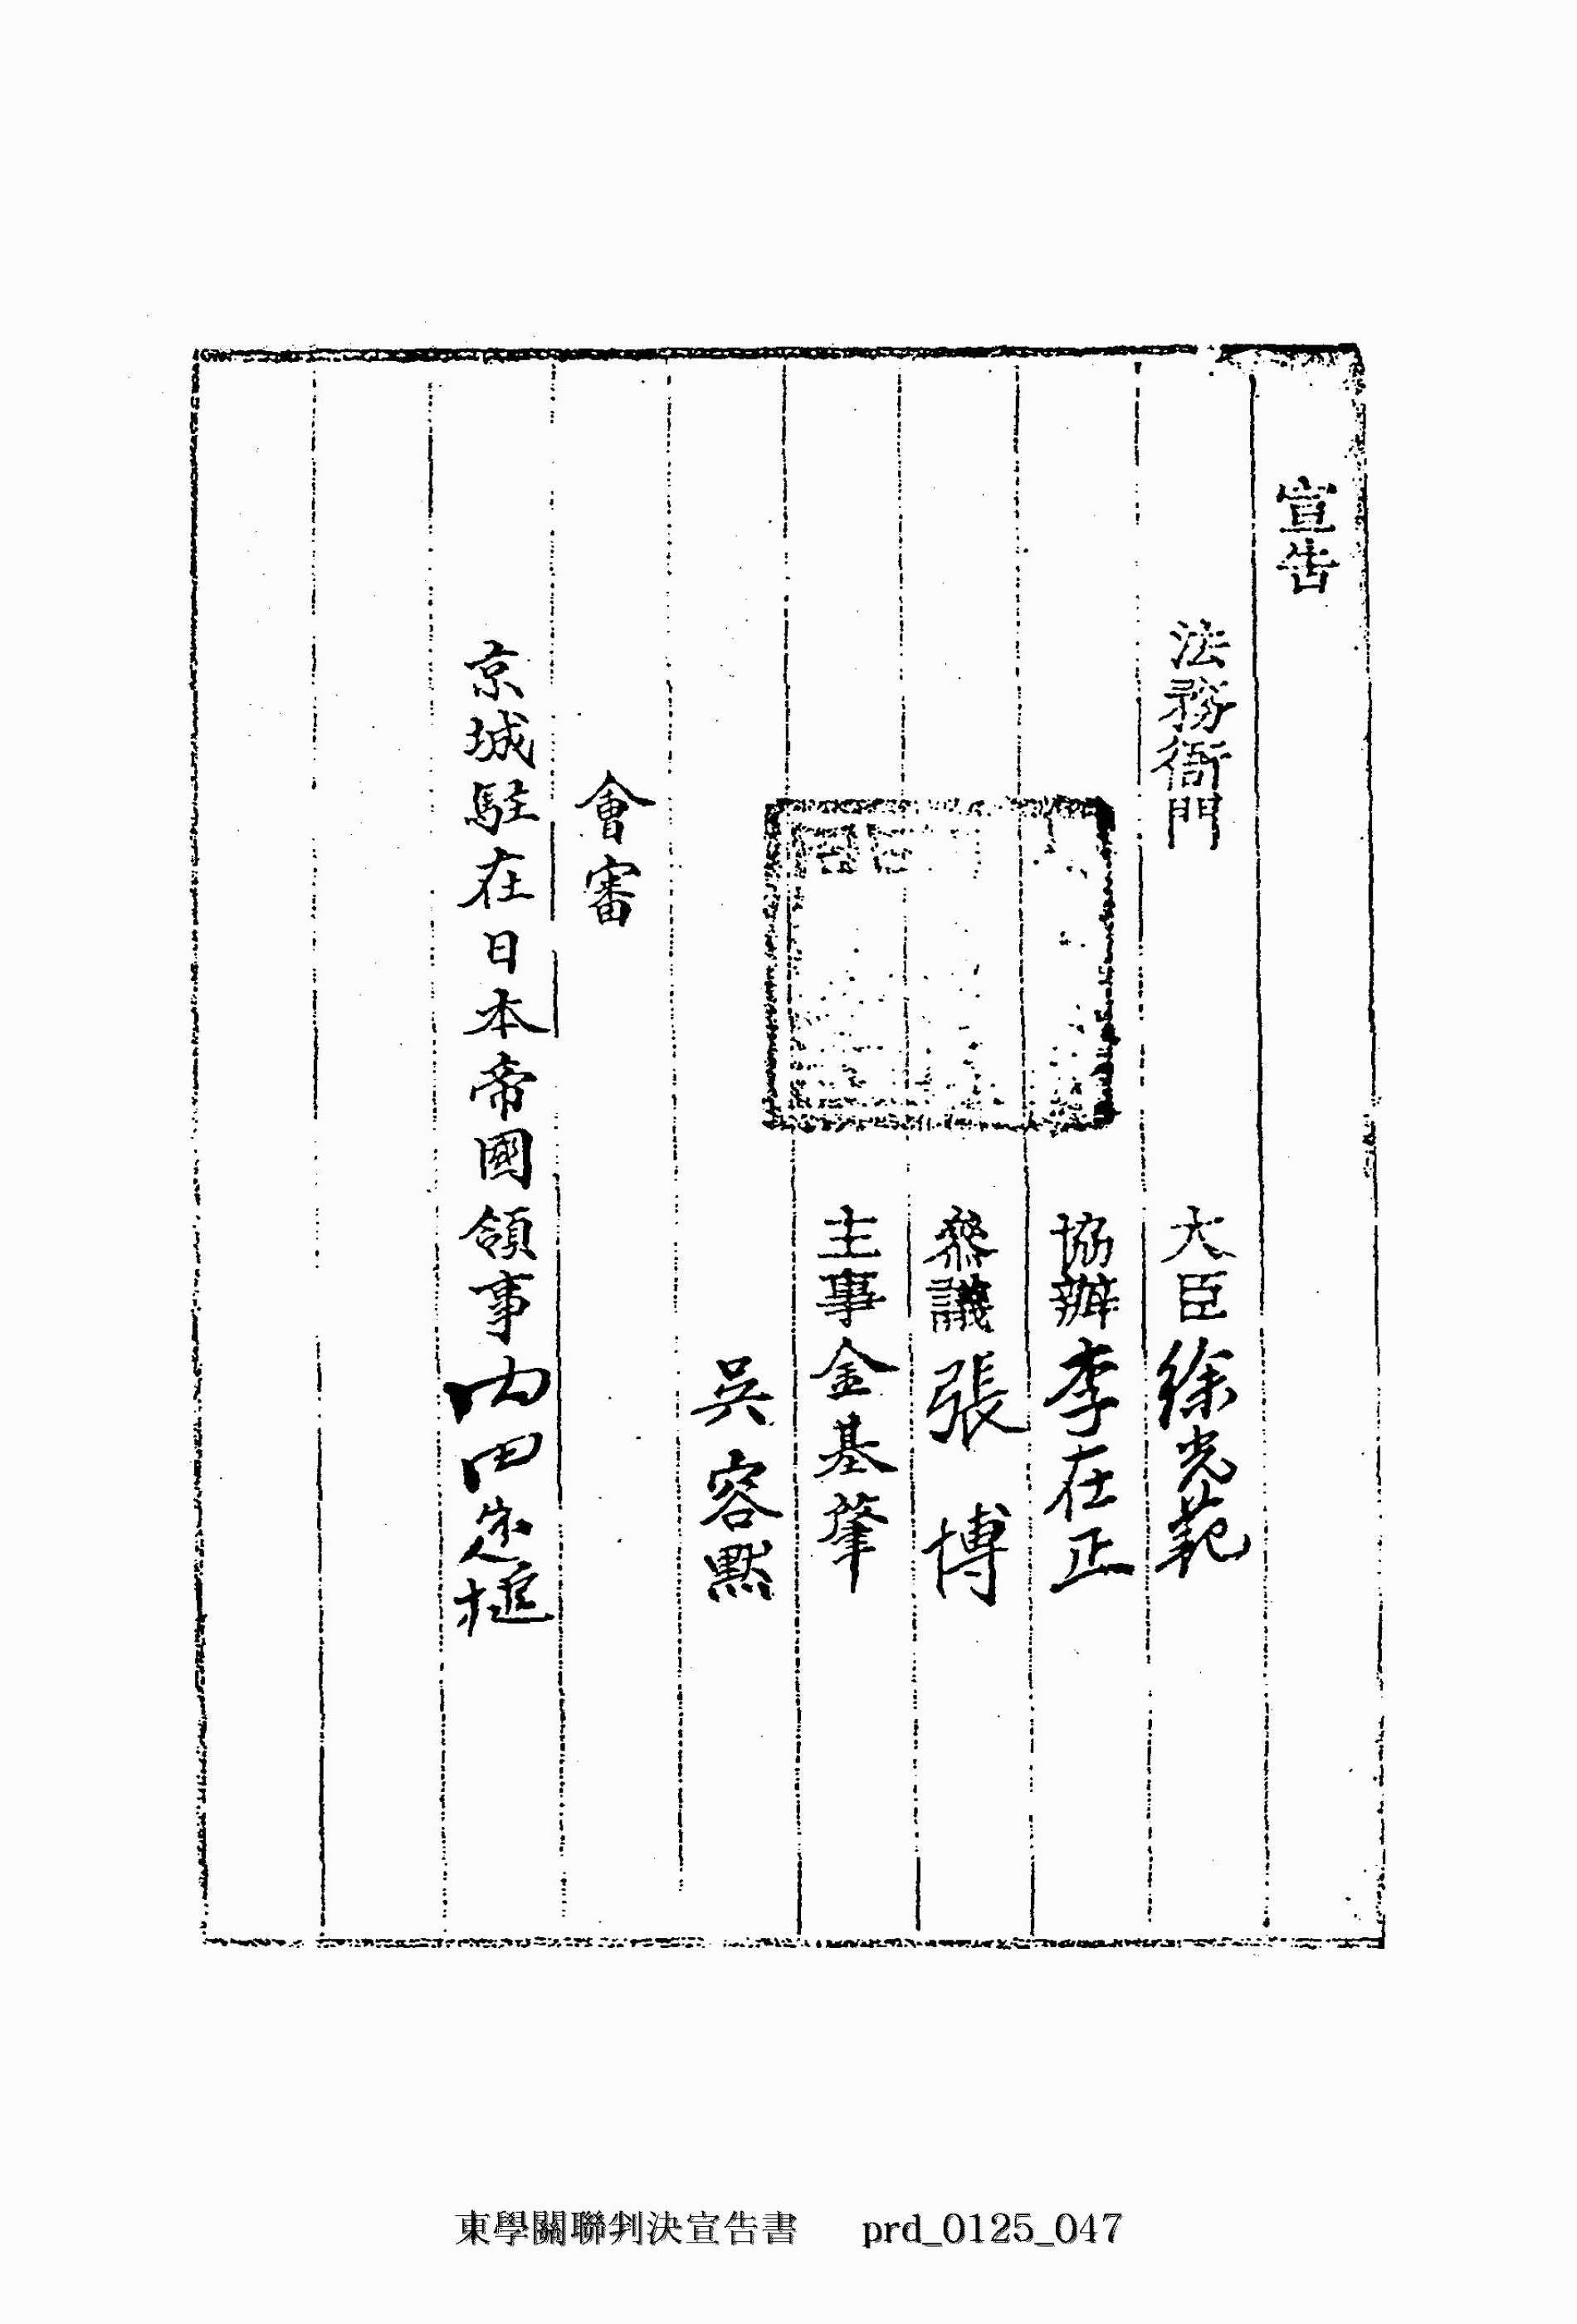 宣告
法務衙門 大臣 徐光範
協辦 李在正
參議 張博
主事 金基肇
吳容默
會審
京城駐在日本帝國領事 內田定槌
東學關聯判決宣告書 prd_0125_047